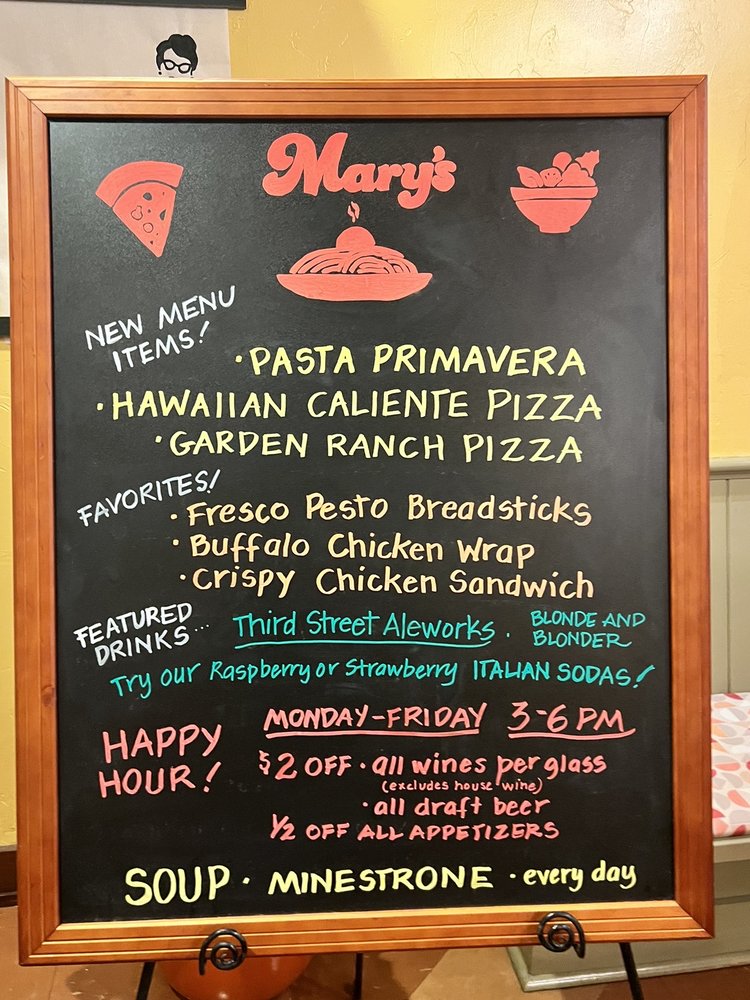 Mary's
NEW MENU
ITEMS!
· PASTA PRIMAVERA
· HAWAIIAN CALIENTE PIZZA
· GARDEN RANCH PIZZA
FAVORITES!
· Fresco Pesto Breadsticks
· Buffalo Chicken Wrap
· Crispy Chicken Sandwich
FEATURED
DRINKS...
Third Street Aleworks.
BLONDE AND
BLONDER
Try our Raspberry or Strawberry ITALIAN SODAS!
HAPPY
HOUR!
MONDAY-FRIDAY 3-6 PM
$2 OFF · all wines per glass
(excludes house wine)
· all draft beer
1/2 OFF ALL APPETIZERS
SOUP · MINESTRONE · every day